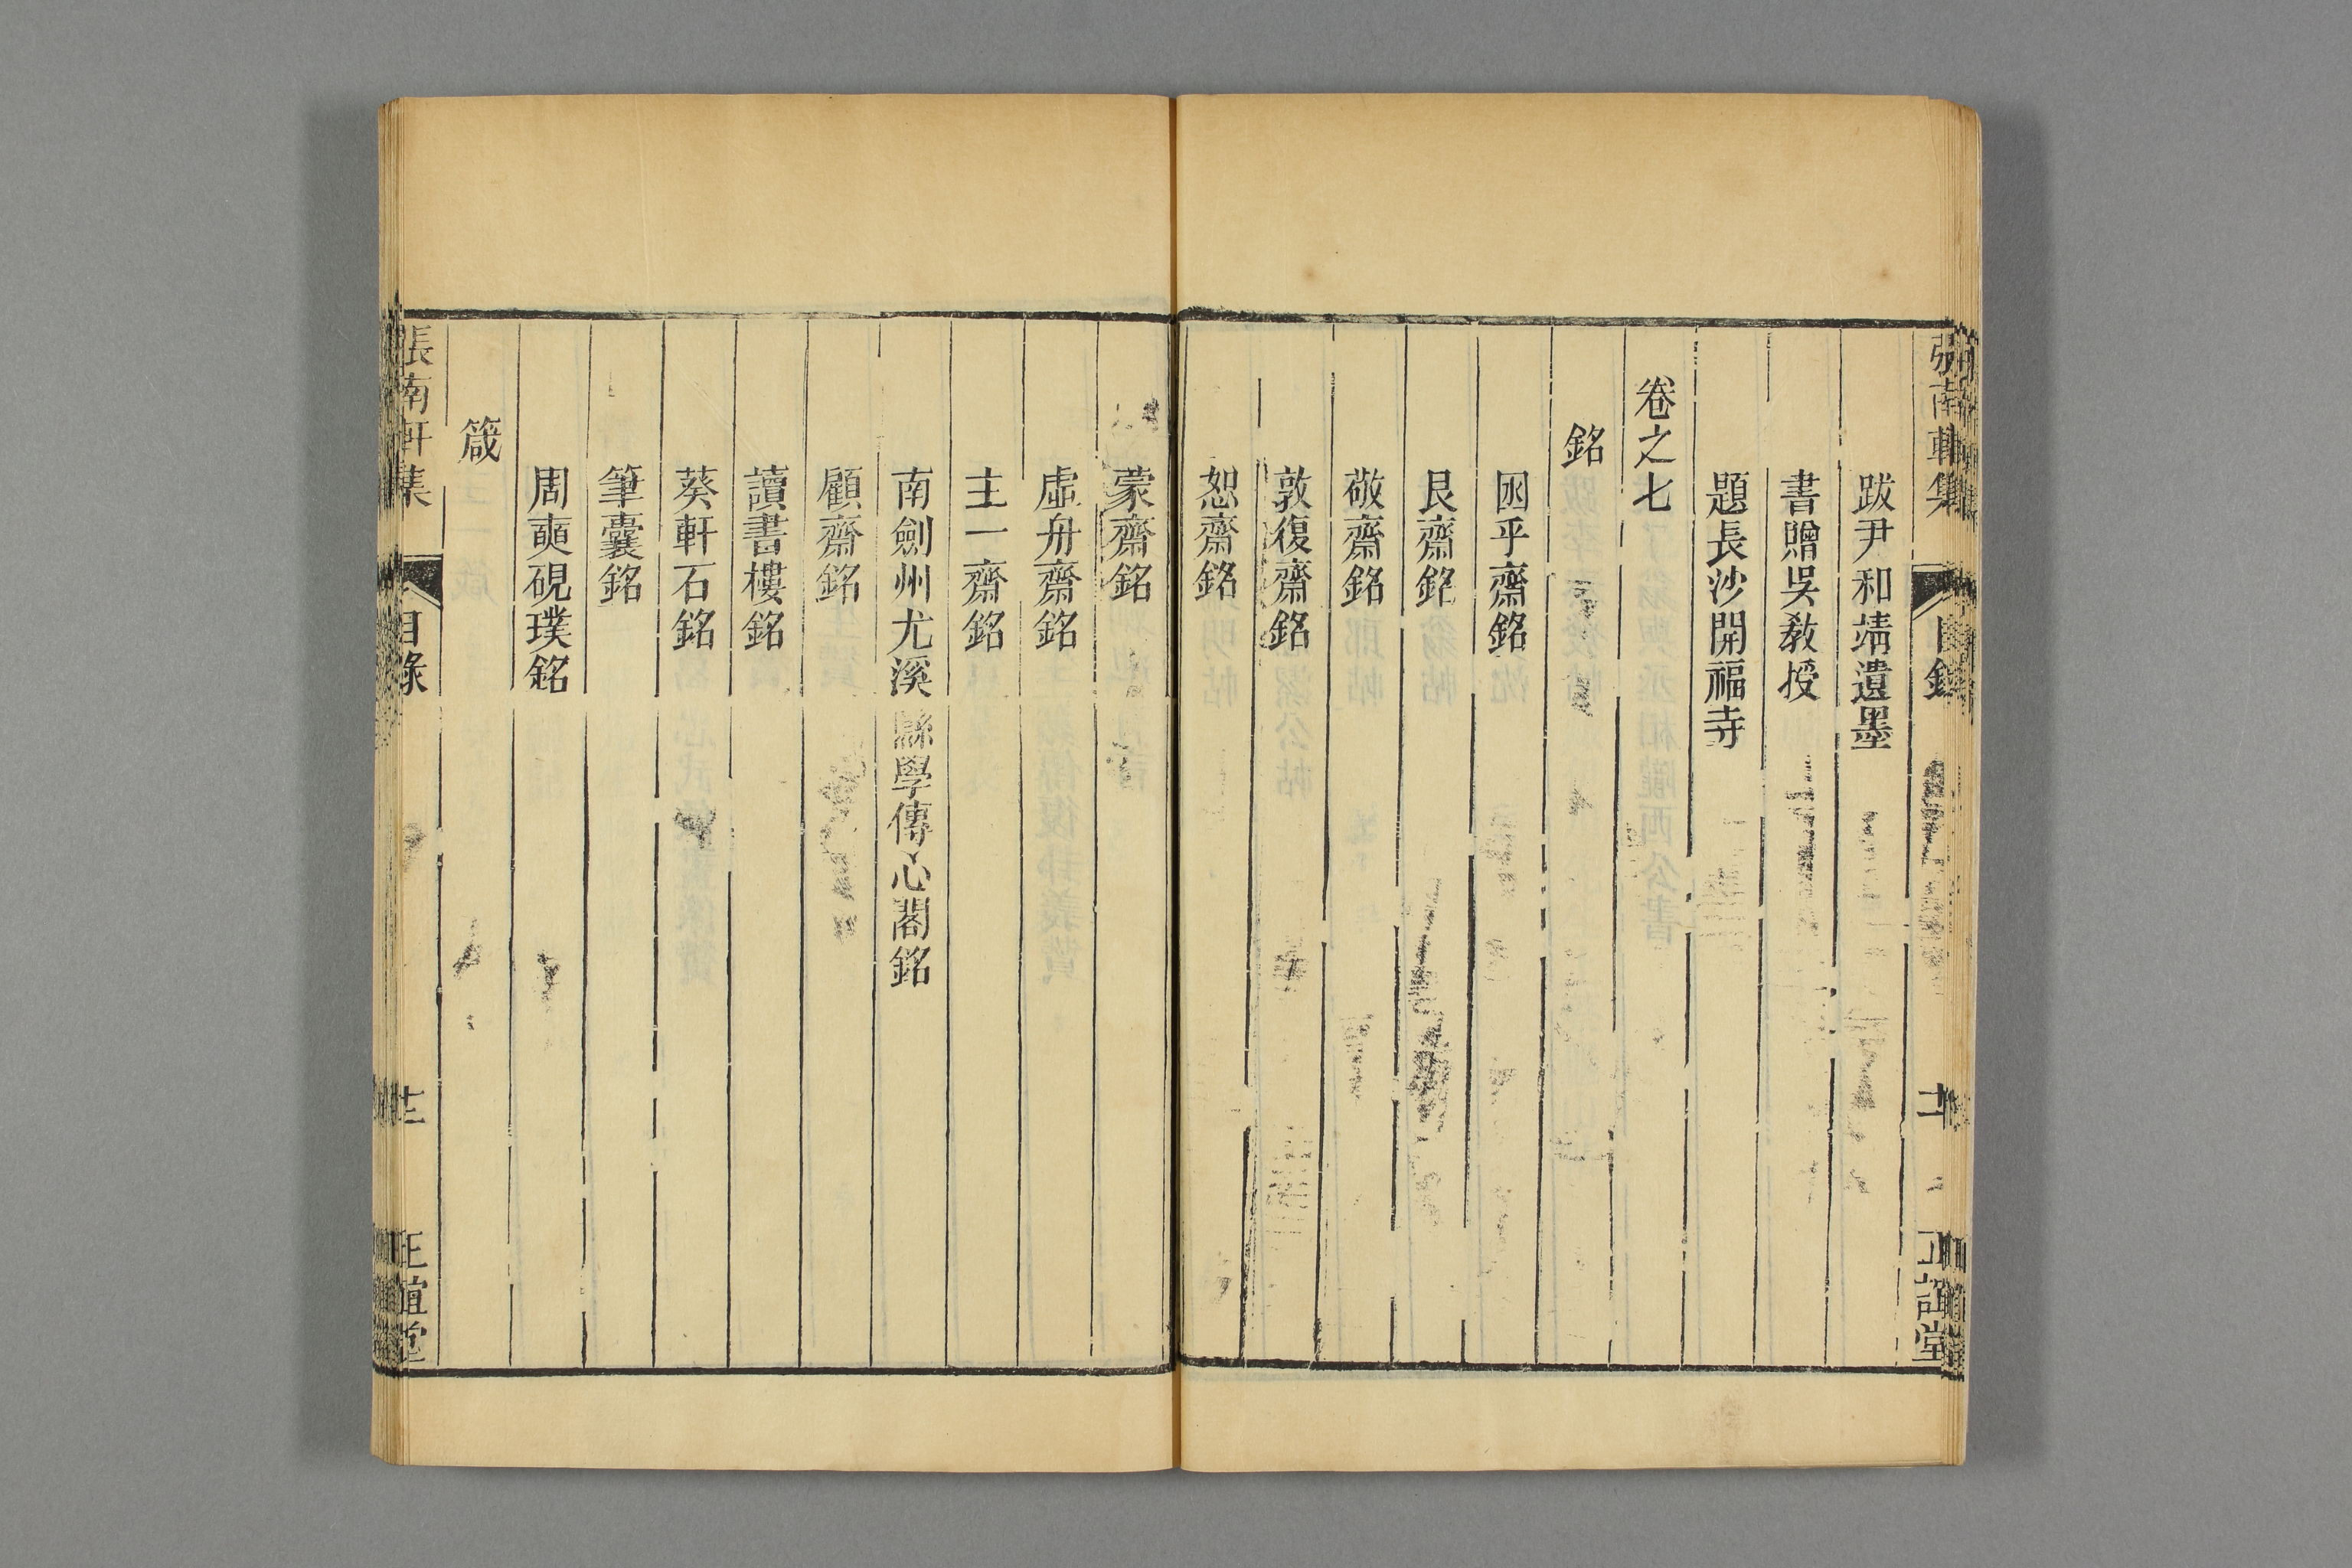 張南軒集 目錄 正誼堂
跋尹和靖遺墨
書贈吳敎授
題長沙開福寺
卷之七
銘
囦乎齋銘
艮齋銘
敬齋銘
敦復齋銘
恕齋銘
蒙齋銘
虛舟齋銘
主一齋銘
南劍州尤溪縣學傳心閣銘
顧齋銘
讀書樓銘
葵軒石銘
筆囊銘
周奭硯璞銘
箴
張南軒集 目錄 正誼堂